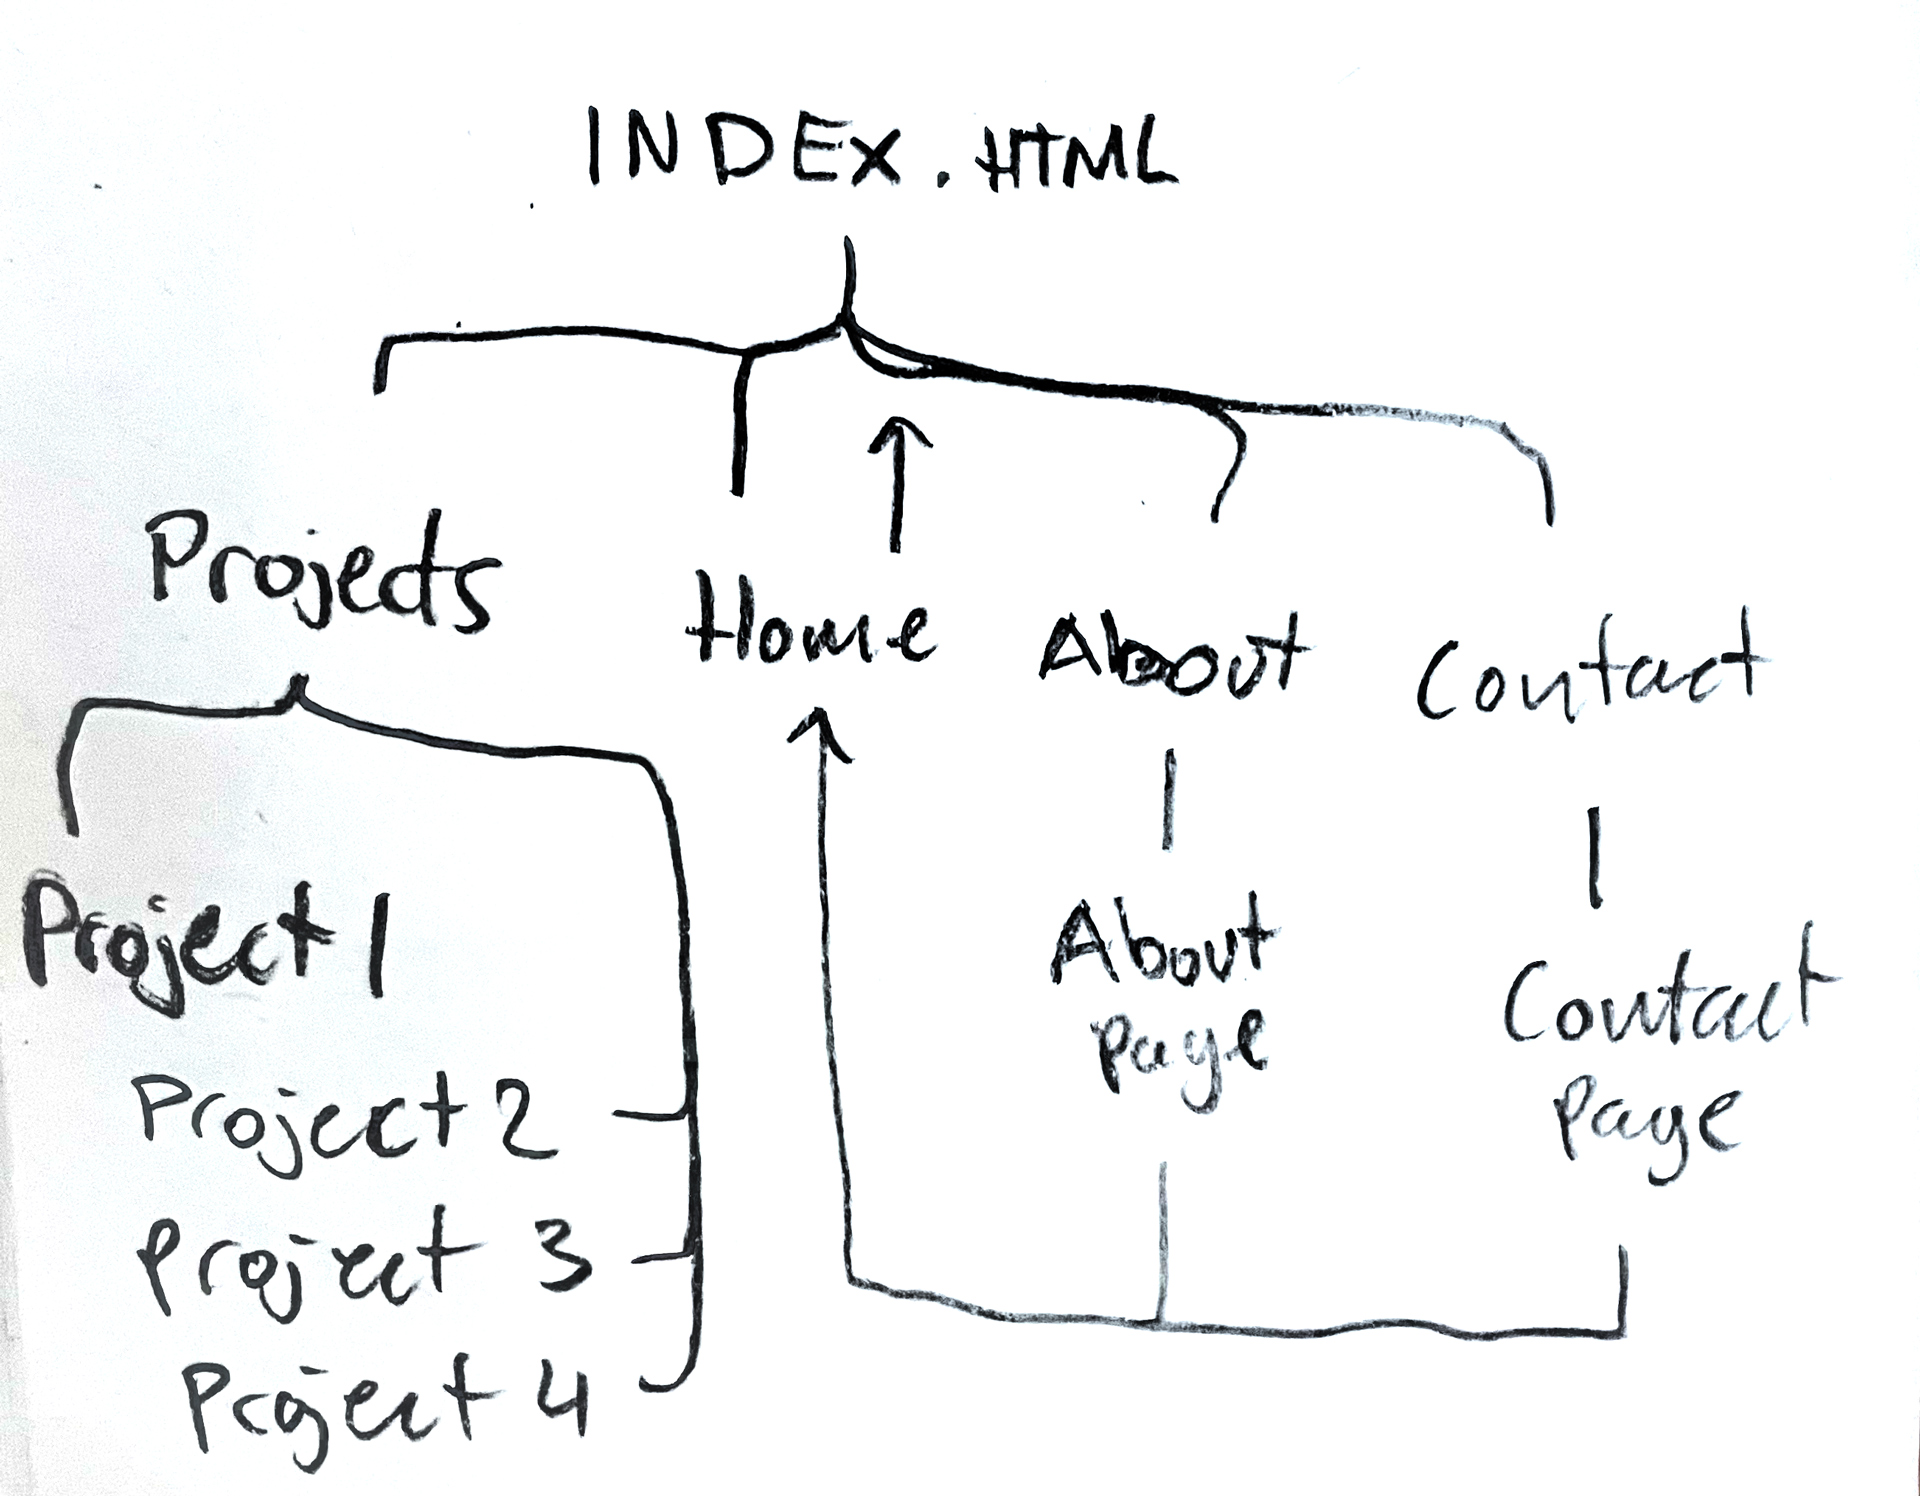 INDEX.HTML
Projects
Home
About
Contact
Project 1
Project 2
Project 3
Project 4
About
Page
Contact
Page